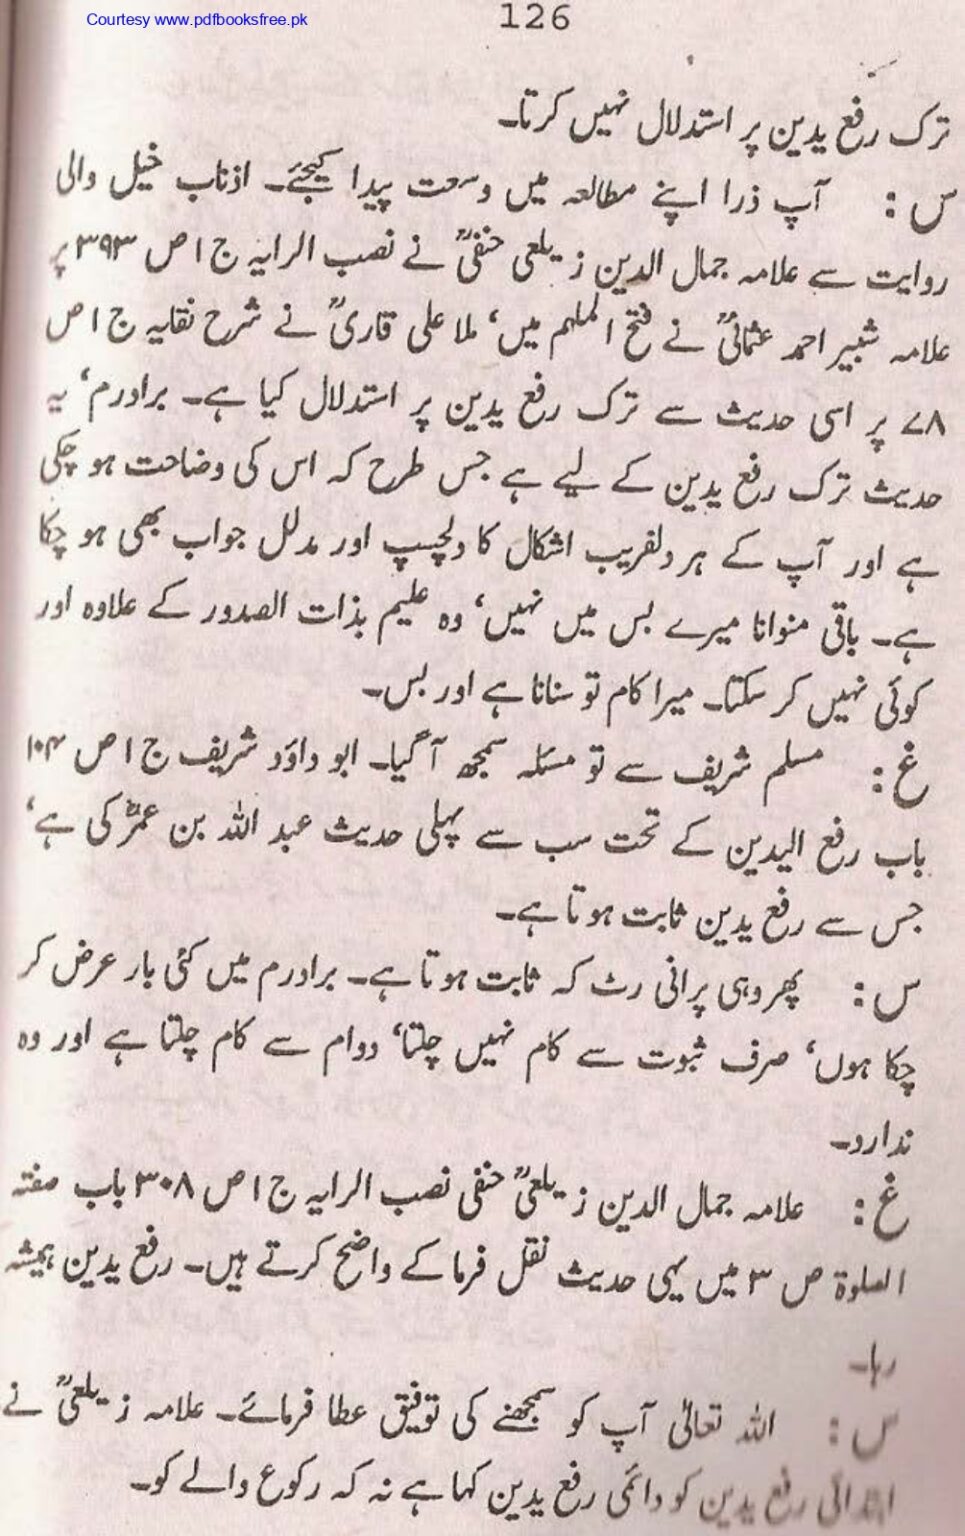 Courtesy www.pdfbooksfree.pk
126
ترک رفع یدین پر استدلال نہیں کرتا۔
س : آپ ذرا اپنے مطالعہ میں وسعت پیدا کیجئے۔ اذناب خیل والی
روایت سے علامہ جمال الدین زیلعی حنفیؒ نے نصب الرایہ ج ۱ ص ۳۹۳ پر
علامہ شبیر احمد عثمانیؒ نے فتح الملہم میں‘ ملا علی قاریؒ نے شرح نقایہ ج ۱ ص
۷۸ پر اسی حدیث سے ترک رفع یدین پر استدلال کیا ہے۔ برادرم‘ یہ
حدیث ترک رفع یدین کے لیے ہے جس طرح کہ اس کی وضاحت ہو چکی
ہے اور آپ کے ہر دلفریب اشکال کا دلچسپ اور مدلل جواب بھی ہو چکا
ہے۔ باقی منوانا میرے بس میں نہیں‘ وہ علیم بذات الصدور کے علاوہ اور
کوئی نہیں کر سکتا۔ میرا کام تو سنانا ہے اور بس۔
غ : مسلم شریف سے تو مسئلہ سمجھ آ گیا۔ ابو داؤد شریف ج ۱ ص ۱۰۴
باب رفع الیدین کے تحت سب سے پہلی حدیث عبد اللہ بن عمرؓ کی ہے‘
جس سے رفع یدین ثابت ہوتا ہے۔
س : پھر وہی پرانی رٹ کہ ثابت ہوتا ہے۔ برادرم میں کئی بار عرض کر
چکا ہوں‘ صرف ثبوت سے کام نہیں چلتا‘ دوام سے کام چلتا ہے اور وہ
ندارد۔
غ : علامہ جمال الدین زیلعیؒ حنفی نصب الرایہ ج ۱ ص ۳۰۸ باب صفتہ
الصلوۃ ص ۳ میں یہی حدیث نقل فرما کے واضح کرتے ہیں۔ رفع یدین ہمیشہ
رہا۔
س : اللہ تعالیٰ آپ کو سمجھنے کی توفیق عطا فرمائے۔ علامہ زیلعیؒ نے
ابتدائی رفع یدین کو دائمی رفع یدین کہا ہے نہ کہ رکوع والے کو۔